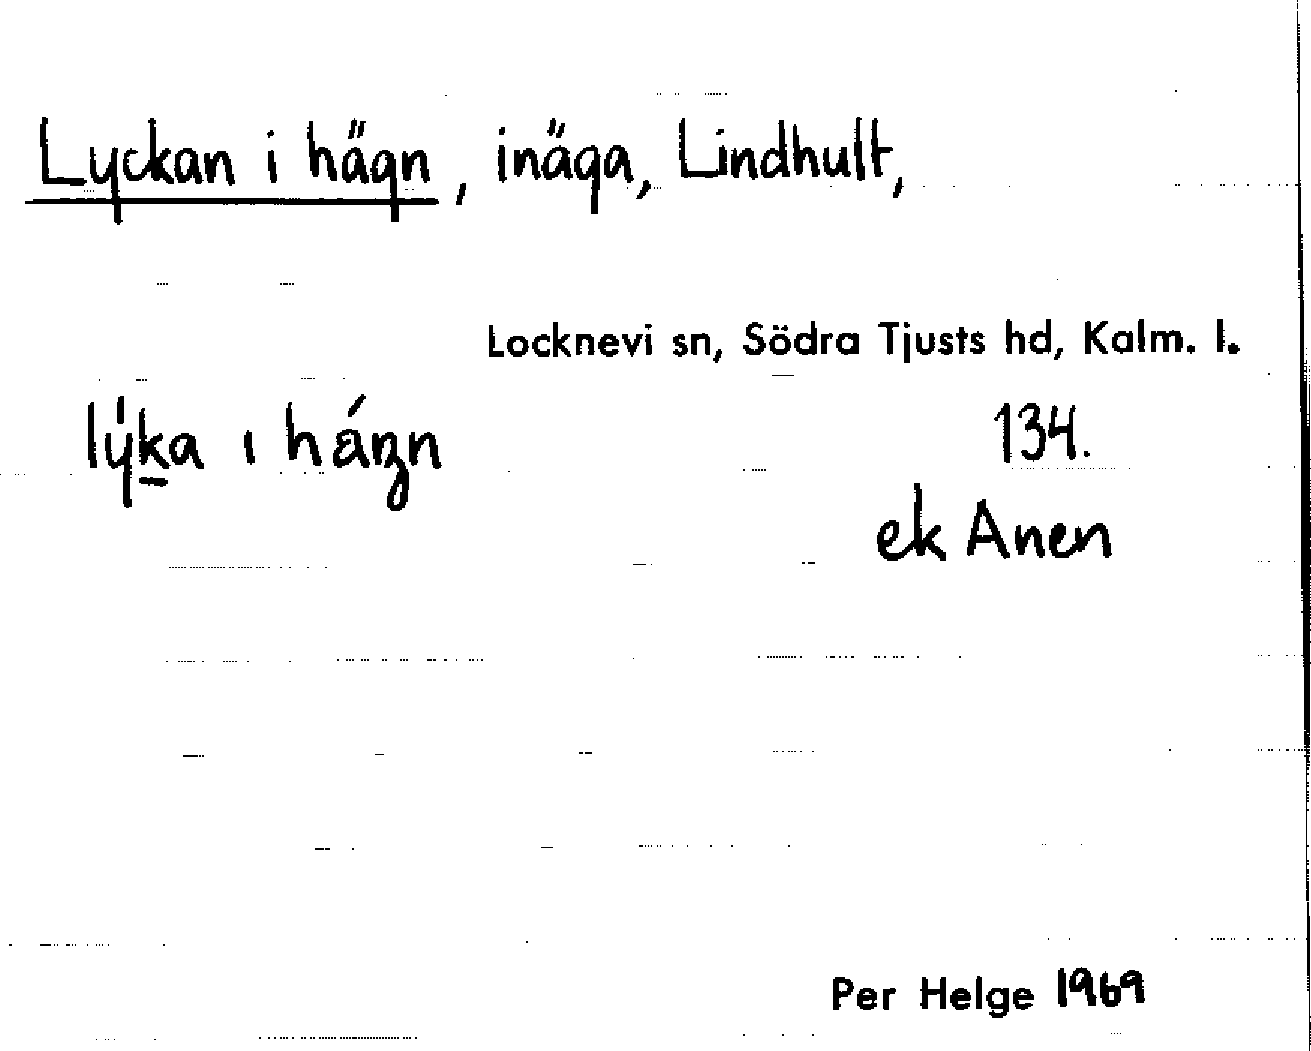 Lyckan i hägn, inäga, Lindhult,
Locknevi sn, Södra Tjusts hd, Kalm. l.
lýka ı háŋn 134.
ek Anen
Per Helge 1969